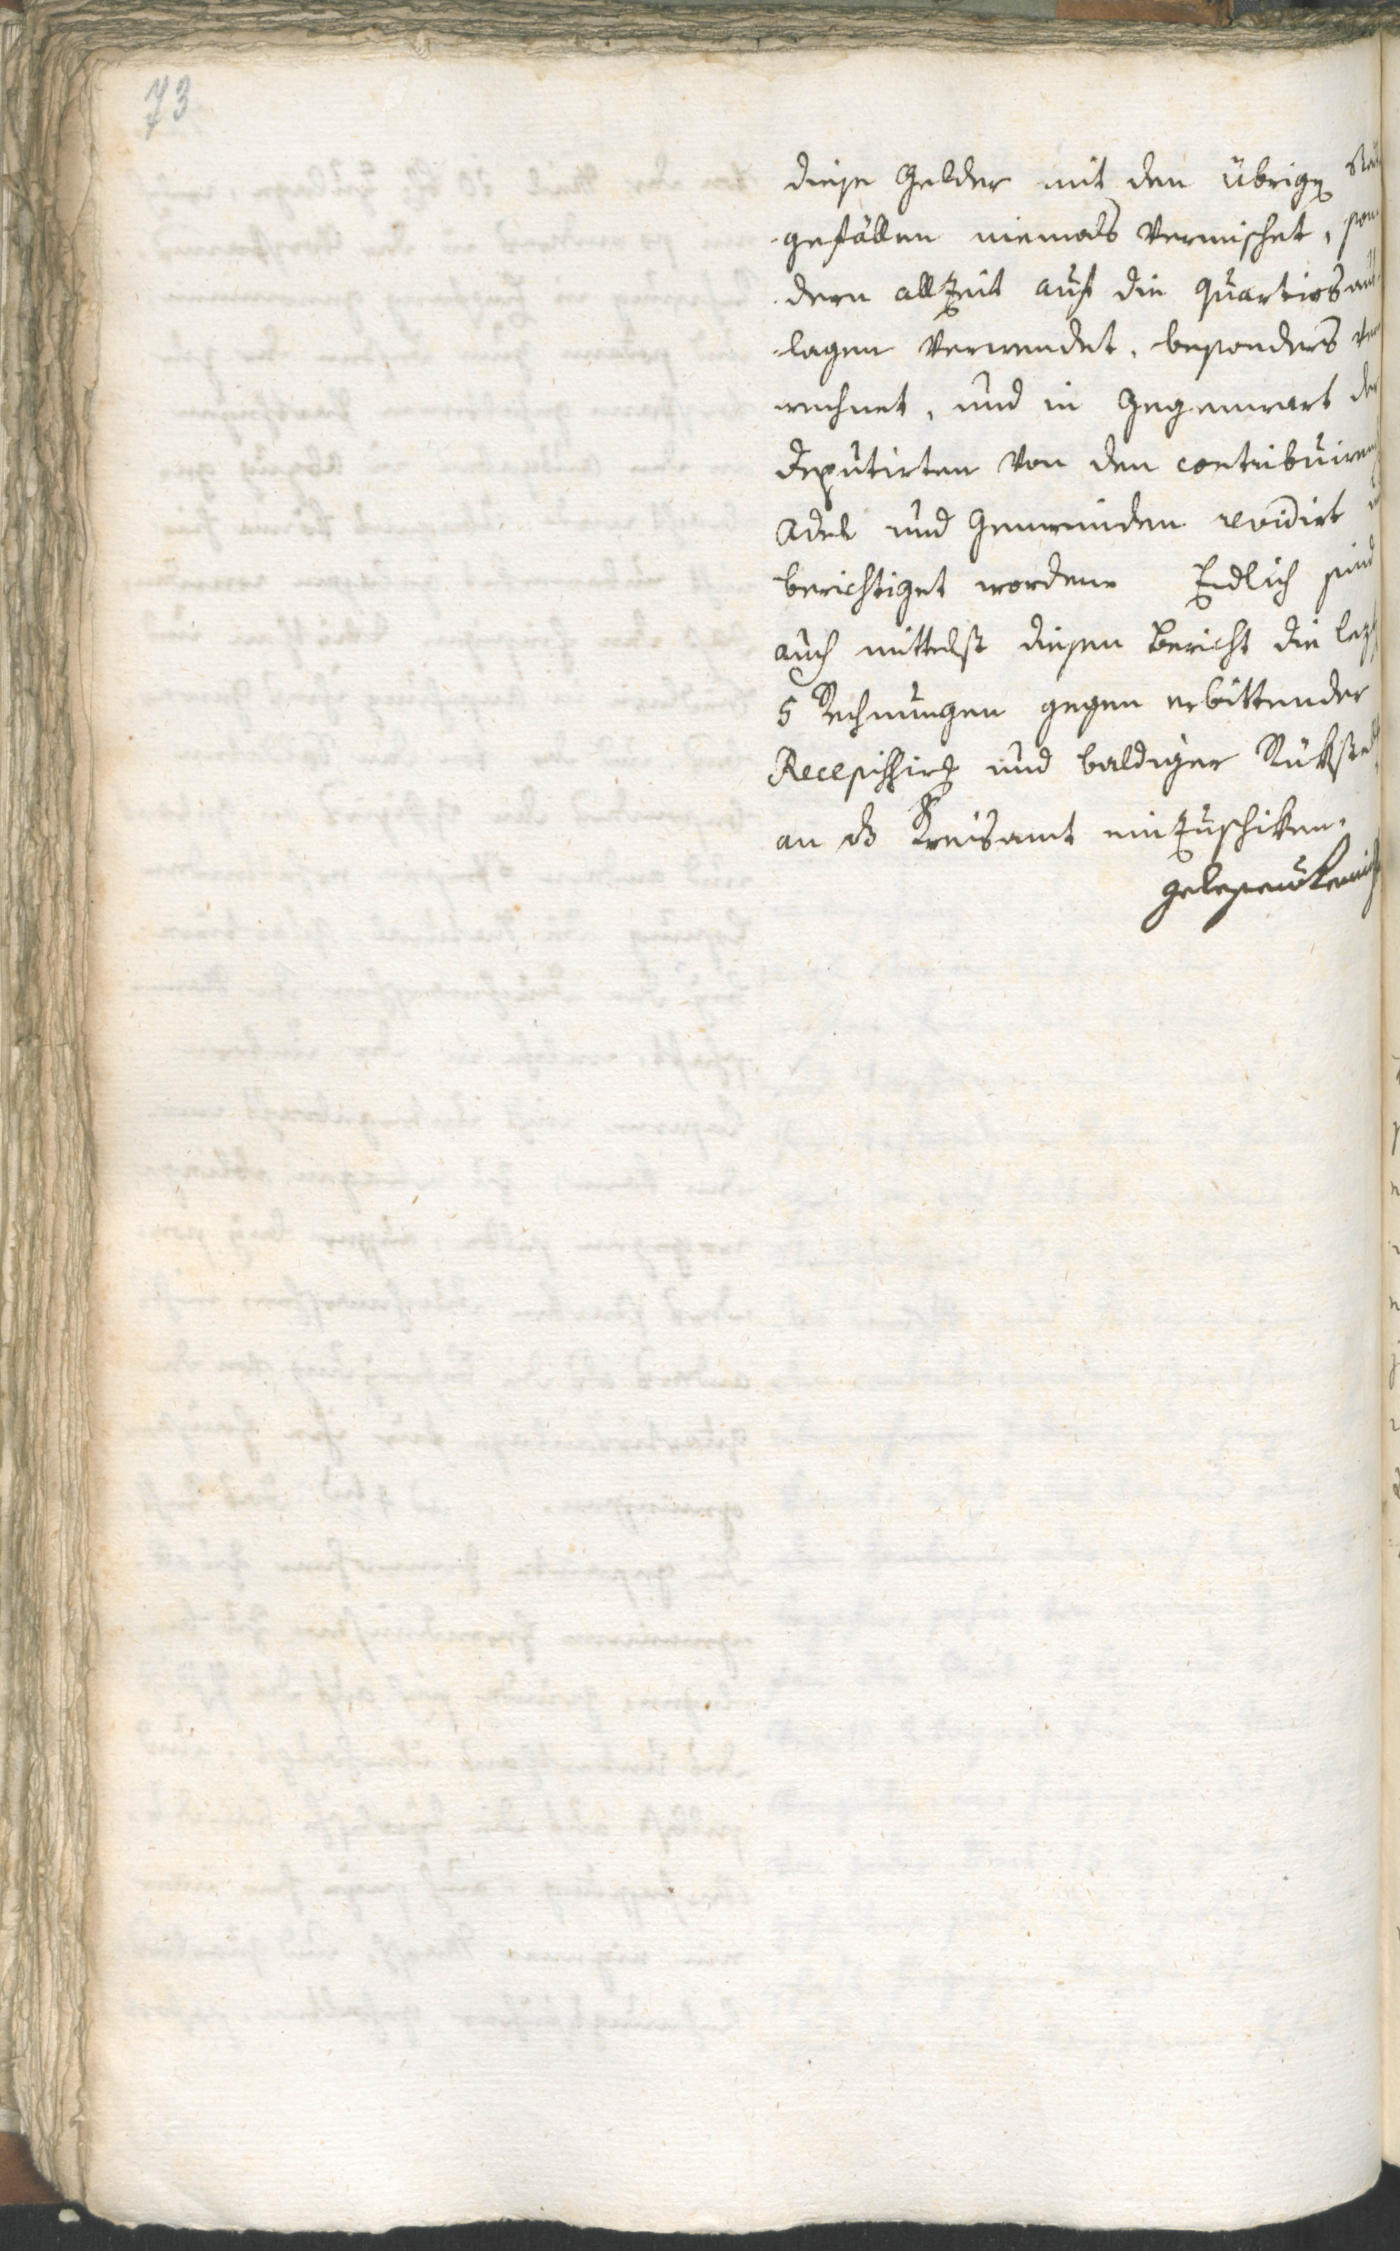 73
diese Gelder mit den übrigen
gefällen niemals vermischet, son
dern allzeit auf die Quartirs
lagen verwendet, besonders ver
rechnet, und in Gegenwart der
Deputirten von den contribuiren
Adel und Gemeinden revidirt
berichtiget worden. Endlich sind
auch mittelst diesen Bericht die lezt
5 Rechnungen gegen erbittender
Recepissirg und baldiger Rükstel
an ds Kreisamt einzuschiken.